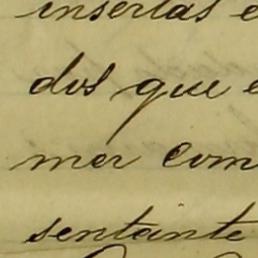 insertas e
dos que e
mer com
sentante